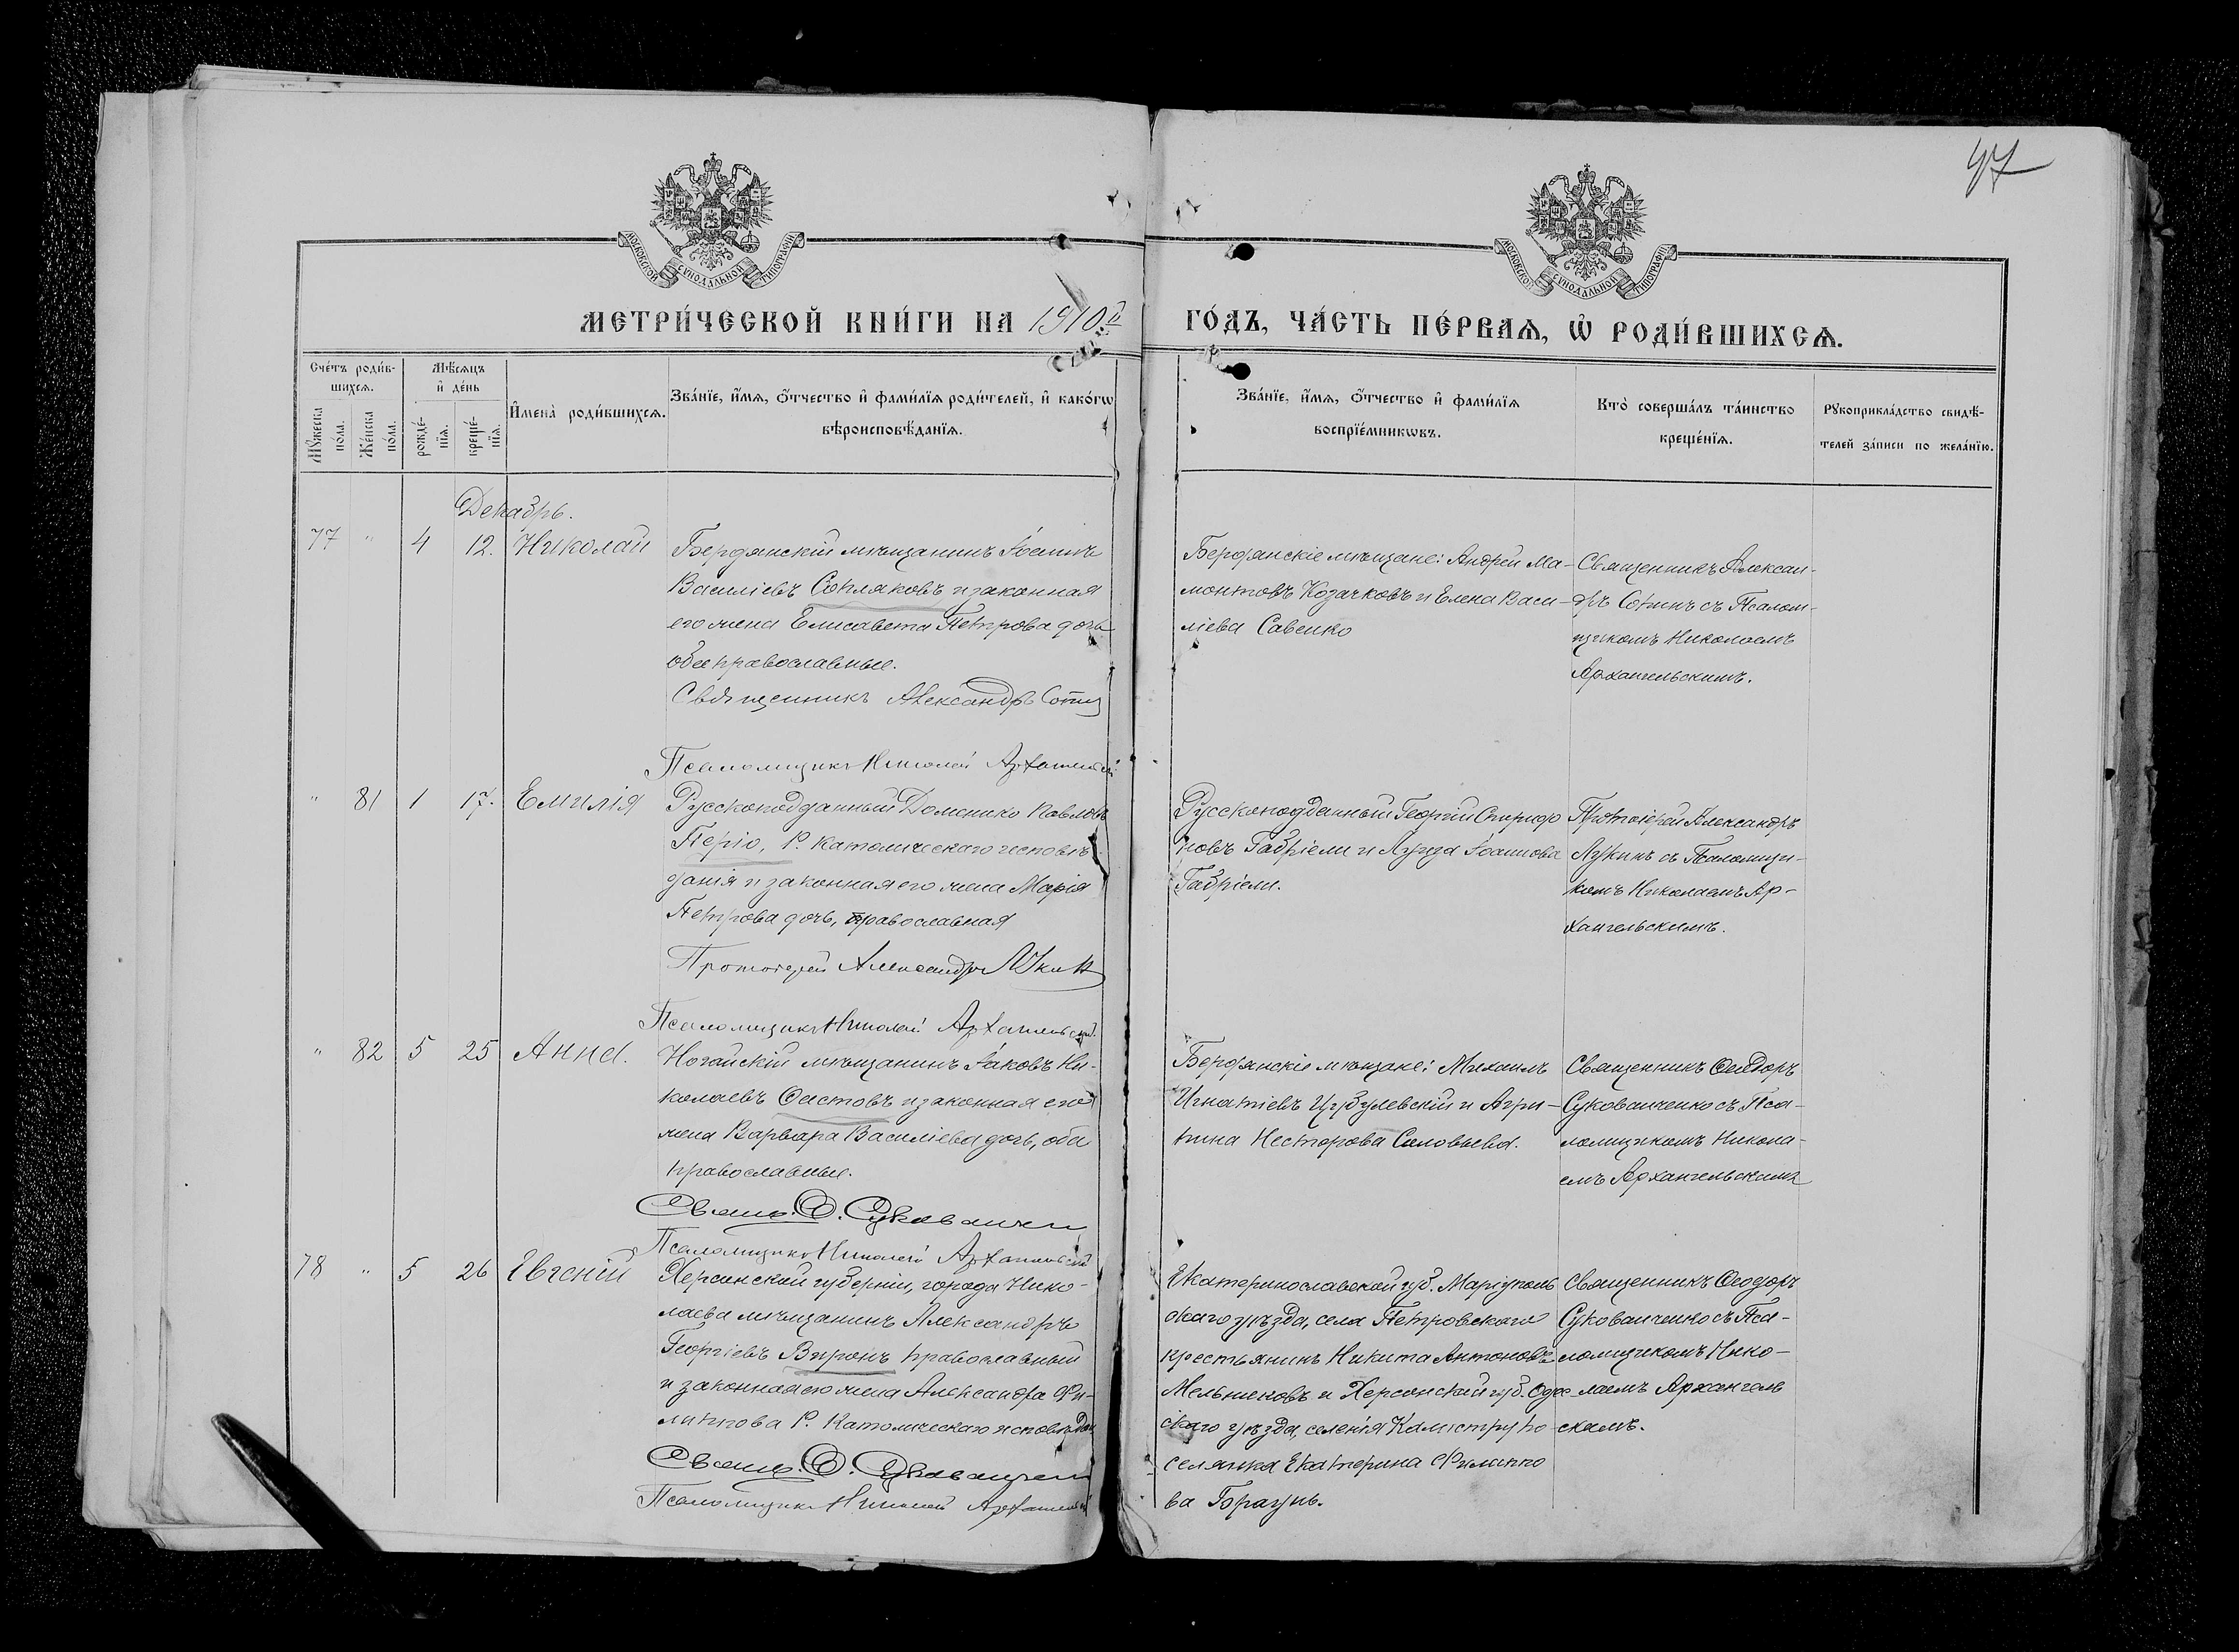 47
МОСКОВСКОЙ СУНОДАЛЬНОЙ ТИПОГРАФІИ
МОСКОВСКОЙ СУНОДАЛЬНОЙ ТИПОГРАФІИ
МЕТРИ́ЧЕСКОЙ КНИ́ГИ НА 1910й ГО́ДЪ, ЧА́СТЬ ПЕ́РВАѦ, Ѡ҆ РОДИ́ВШИХСѦ.
Сче́тъ роди́в-
шихсѧ.
Мꙋ́жеска по́ла.
Же́нска по́ла.
Мѣ́сѧцъ
и҆ де́нь
рожде́-
нїѧ.
креще́-
нїѧ.
И҆мена̀ роди́вшихсѧ.
Зва́нїе, и҆́мѧ, ѻ҆́тчество и҆ фами́лїѧ роди́телей, и҆ како́гѡ
вѣроисповѣ́данїѧ.
Зва́нїе, и҆́мѧ, ѻ҆́тчество и҆ фами́лїѧ
воспрїе́мникѡвъ.
Кто̀ соверша́лъ та́инство
креще́нїѧ.
Рꙋкоприкла́дство свидѣ́-
телей за́писи по жела́нїю.
Декабрь.
77 " 4 12. Николай
Бердянскій мѣщанинъ Іоаннъ
Василіевъ Сопляковъ и законная
его жена Елисавета Петрова дочь
оба православные.
Священникъ Александръ
Псаломщикъ Николай Архангельскій
Бердянскіе мѣщане: Андрей Ма-
монтовъ Козачковъ и Елена Васи-
ліева Савенко
Священникъ Алексан-
дръ съ Псалом-
щикомъ Николаемъ
Архангельскимъ.
" 81 1 17. Емилія
Русскоподданный Доменико Павловъ
Періо, Р. Католическаго исповѣ-
данія и законная его жена Марія
Петрова дочь, православная
Протоіерей Александръ Лукинъ
Псаломщикъ Николай Архангельскій
Русскоподданный Георгій Спиридо
новъ Габріели и Луиза Іоаннова
Габріели.
Протоіерей Александръ
Лукинъ съ Псаломщи-
комъ Николаемъ Ар-
хангельскимъ.
" 82 5 25 Анна.
Ногайскій мѣщанинъ Іаковъ Ни-
колаевъ и законная его
жена Варвара Василіева дочь, оба
православные.
Свящ. Ѳ. Сукованченко
Псаломщикъ Николай Архангельскій
Бердянскіе мѣщане: Михаилъ
Игнатіевъ и Агри-
пина Несторова Соловьева.
Священникъ Ѳеодоръ
Сукованченко съ Пса-
ломщикомъ Никола-
емъ Архангельскимъ
78 " 5 26 Евгеній
Херсонской губерніи, города Нико-
лаева мѣщанинъ Александръ
Георгіевъ Виронъ православный
и законная его жена Александра Фи-
липпова Р. Католическаго исповѣдан
Свящ. Ѳ. Сукованченко
Псаломщикъ Николай Архангельскій
Екатеринославской губ. Маріуполь
скаго уѣзда, села Петровскаго
крестьянинъ Никита Антоновъ
Мельниковъ и Херсонской губ. Одес
скаго уѣзда, селенія по
селянка Екатерина Филиппо
ва
Священникъ Ѳеодоръ
Сукованченко съ Пса-
ломщикомъ Нико-
лаемъ Архангель
скимъ.